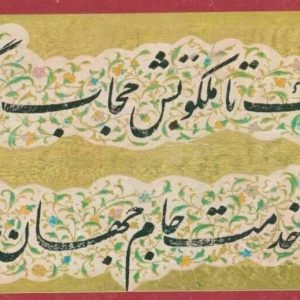 تا ملکوتش حجاب
خدمت جام جهان